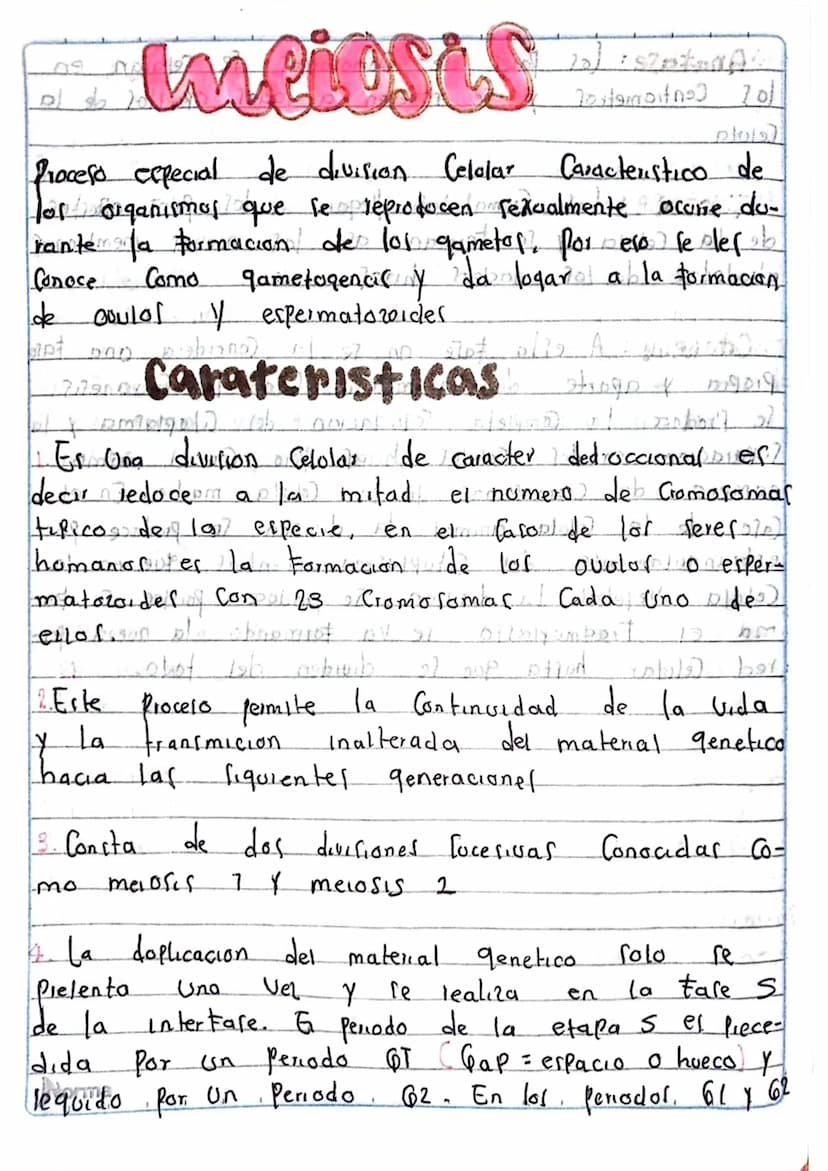 meiosis
Proceso especial de division Celular Caracteristico de
los organismos que se reproducen sexualmente ocurre du-
rante la formacion de los gametos. Por eso se les
Conoce Como gametogencis y da logar a la formacion
de ovulos y espermatozoides
Carateristicas
1. Es Una division Celolar de caracter dedroccional es
decir redocem a la mitad el numero de Cromosomas
tipico de la especie, en el Caso de los seres
humanos es la Formacion de los ovulos o esper-
matozoides Con 23 Cromosomas Cada uno de
ellos.
2. Este Proceso permite la Continuidad de la vida
y la transmicion inalterada del material genetico
hacia las siguientes generaciones
3. Consta de dos divisiones sucesivas Conocidas Co-
mo meiosis 1 Y meiosis 2
4. La doplicacion del material genetico solo se
Presenta Una vez y se realiza en la fase S
de la interfase. El periodo de la etapa S es prece-
dida por un Periodo GT (Gap = espacio o hueco) y
seguido por Un Periodo G2. En los periodos G1 y G2
Norma